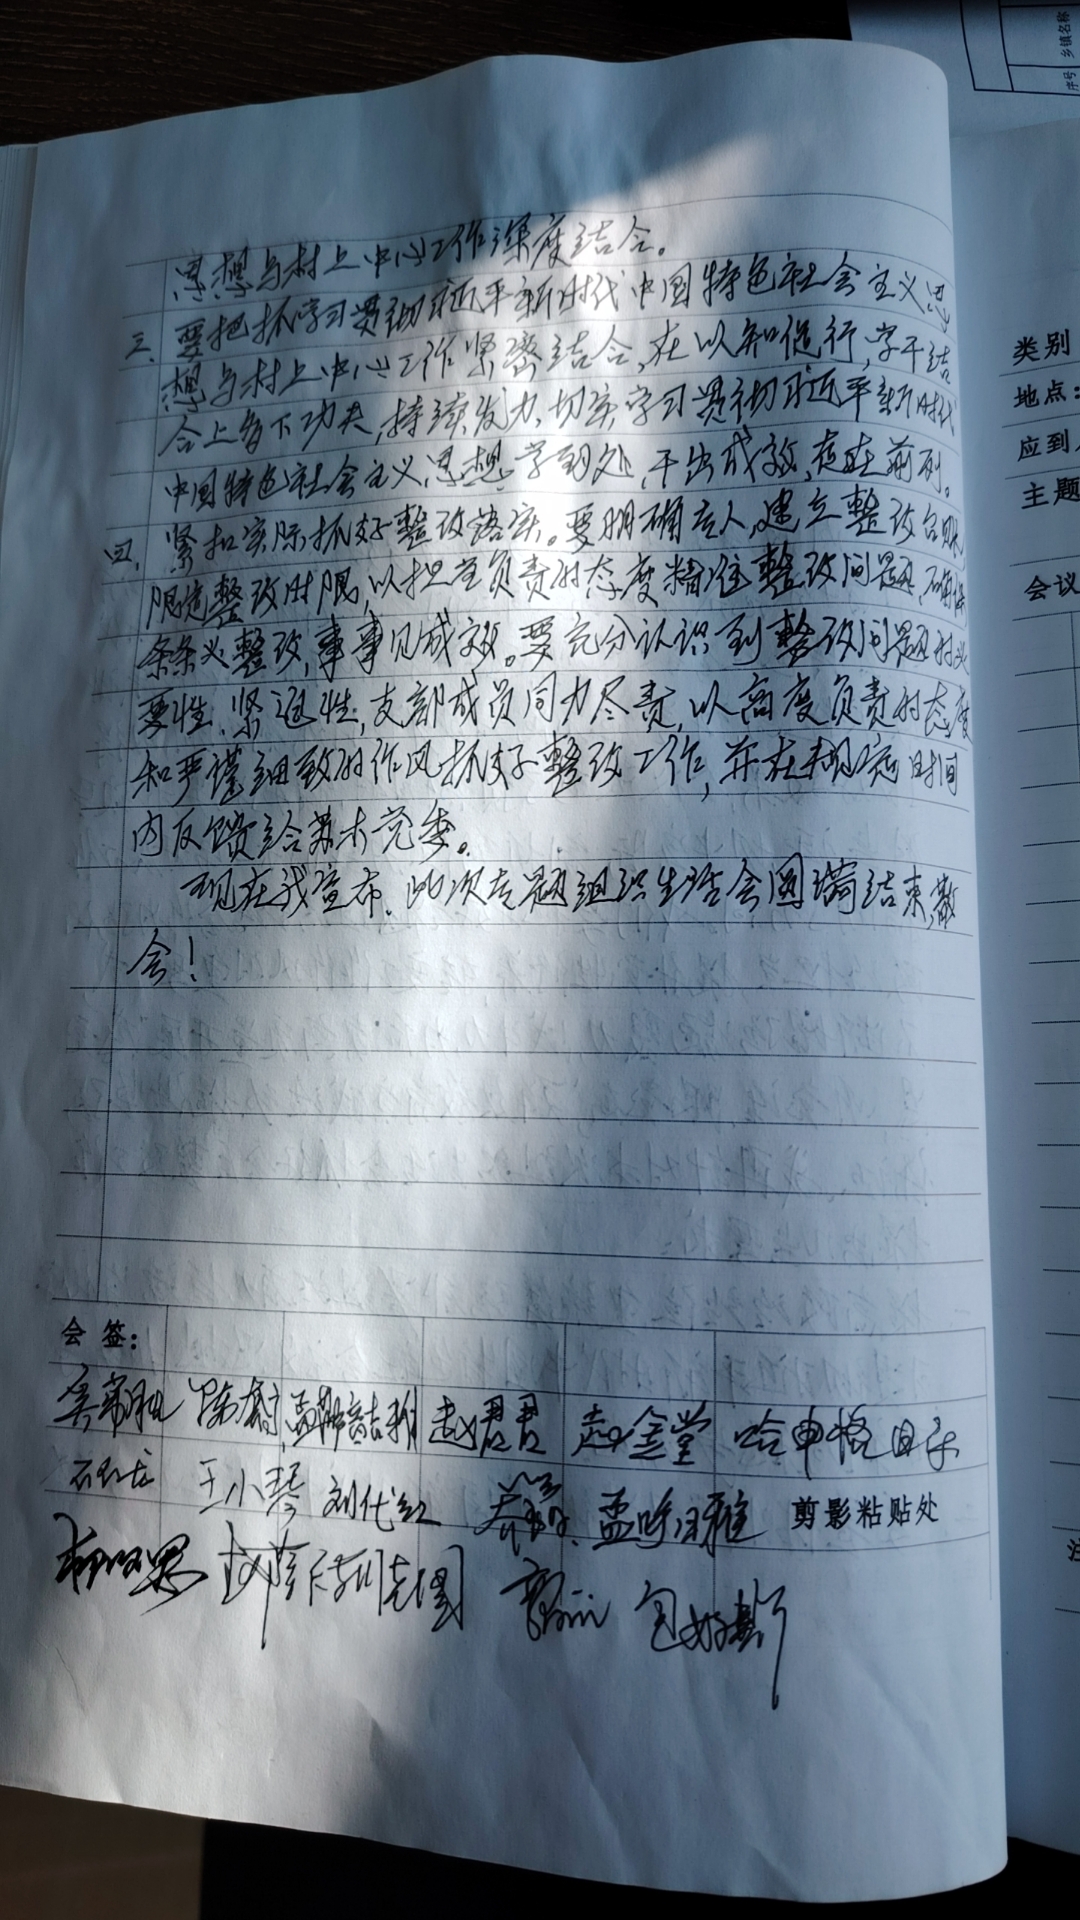 思想与村上中心工作深度结合。
三、要把抓学习贯彻习近平新时代中国特色社会主义思
想与村上中心工作紧密结合,在以知促行,学干结
合上多下功夫,持续发力,切实学习贯彻习近平新时代
中国特色社会主义思想学到处,干出成效,走在前列。
四、紧扣实际抓好整改落实。要明确责人,建立整改台账
限定整改时限,以担当负责的态度精准整改问题,确保
条条必整改,事事见成效。要充分认识到整改问题的必
要性、紧迫性,支部成员同力尽责,以高度负责的态度
和严谨细致的作风抓好整改工作,并在规定时间
内反馈给苏木党委。
现在我宣布,此次专题组织生活会圆满结束,散
会!
会 签:
赵君君 赵金堂
王小琴 刘代红
剪影粘贴处
序号 乡镇名称
类别
地点:
应到
主题
会议
注